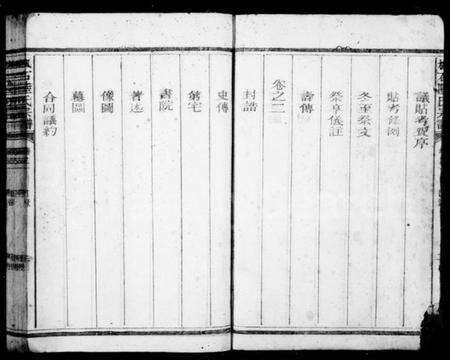 議貼考費序
貼考條例
冬至祭文
祭享儀註
壽傳
卷之二
封誥
史傳
第宅
書院
著述
像圖
墓圖
合同議約